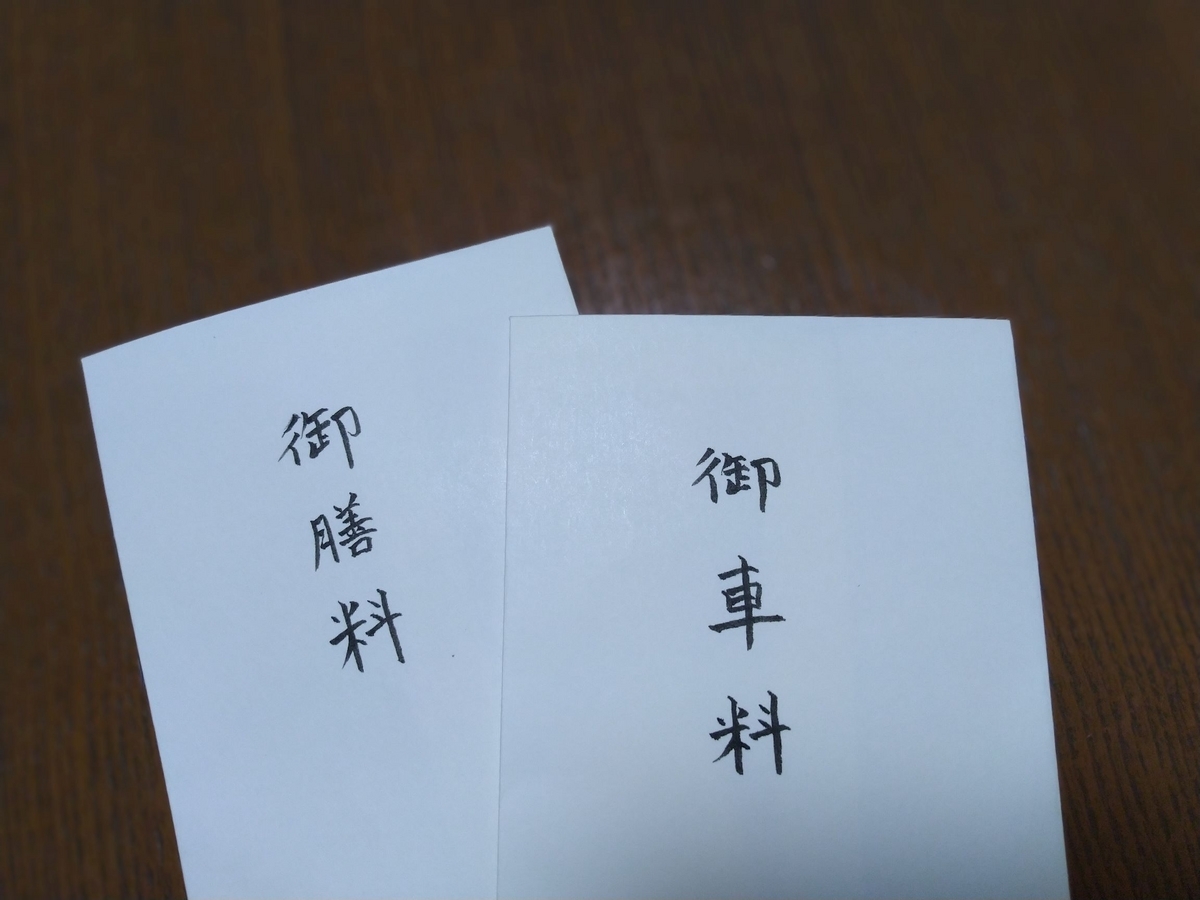 御膳料
御車料